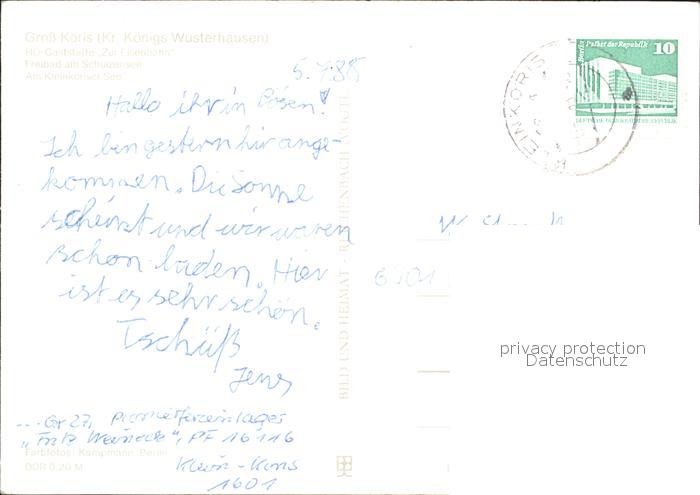 Groß Köris (Kr. Königs Wusterhausen)
HO-Gaststätte „Zur Eisenbahn"
Freibad am Schulzensee
Am Kleinköriser See
5.7.88
Hallo ihr in Bösen!
Ich bin gestern hir ange-
kommen. Die Sonne
scheint und wir waren
schon baden. Hier
ist es sehr schön.
Tschüß
Jens
... Gr 27, Pionierferienlager
„Fritz Weineck", PF 16116
Klein-Köris
1601
Farbfotos: Kampmann, Berlin
DDR 0,20 M
BILD UND HEIMAT · REICHENBACH (VOGTL)
KLEIN KÖRIS
Berlin Palast der Republik 10
DEUTSCHE DEMOKRATISCHE REPUBLIK
privacy protection
Datenschutz